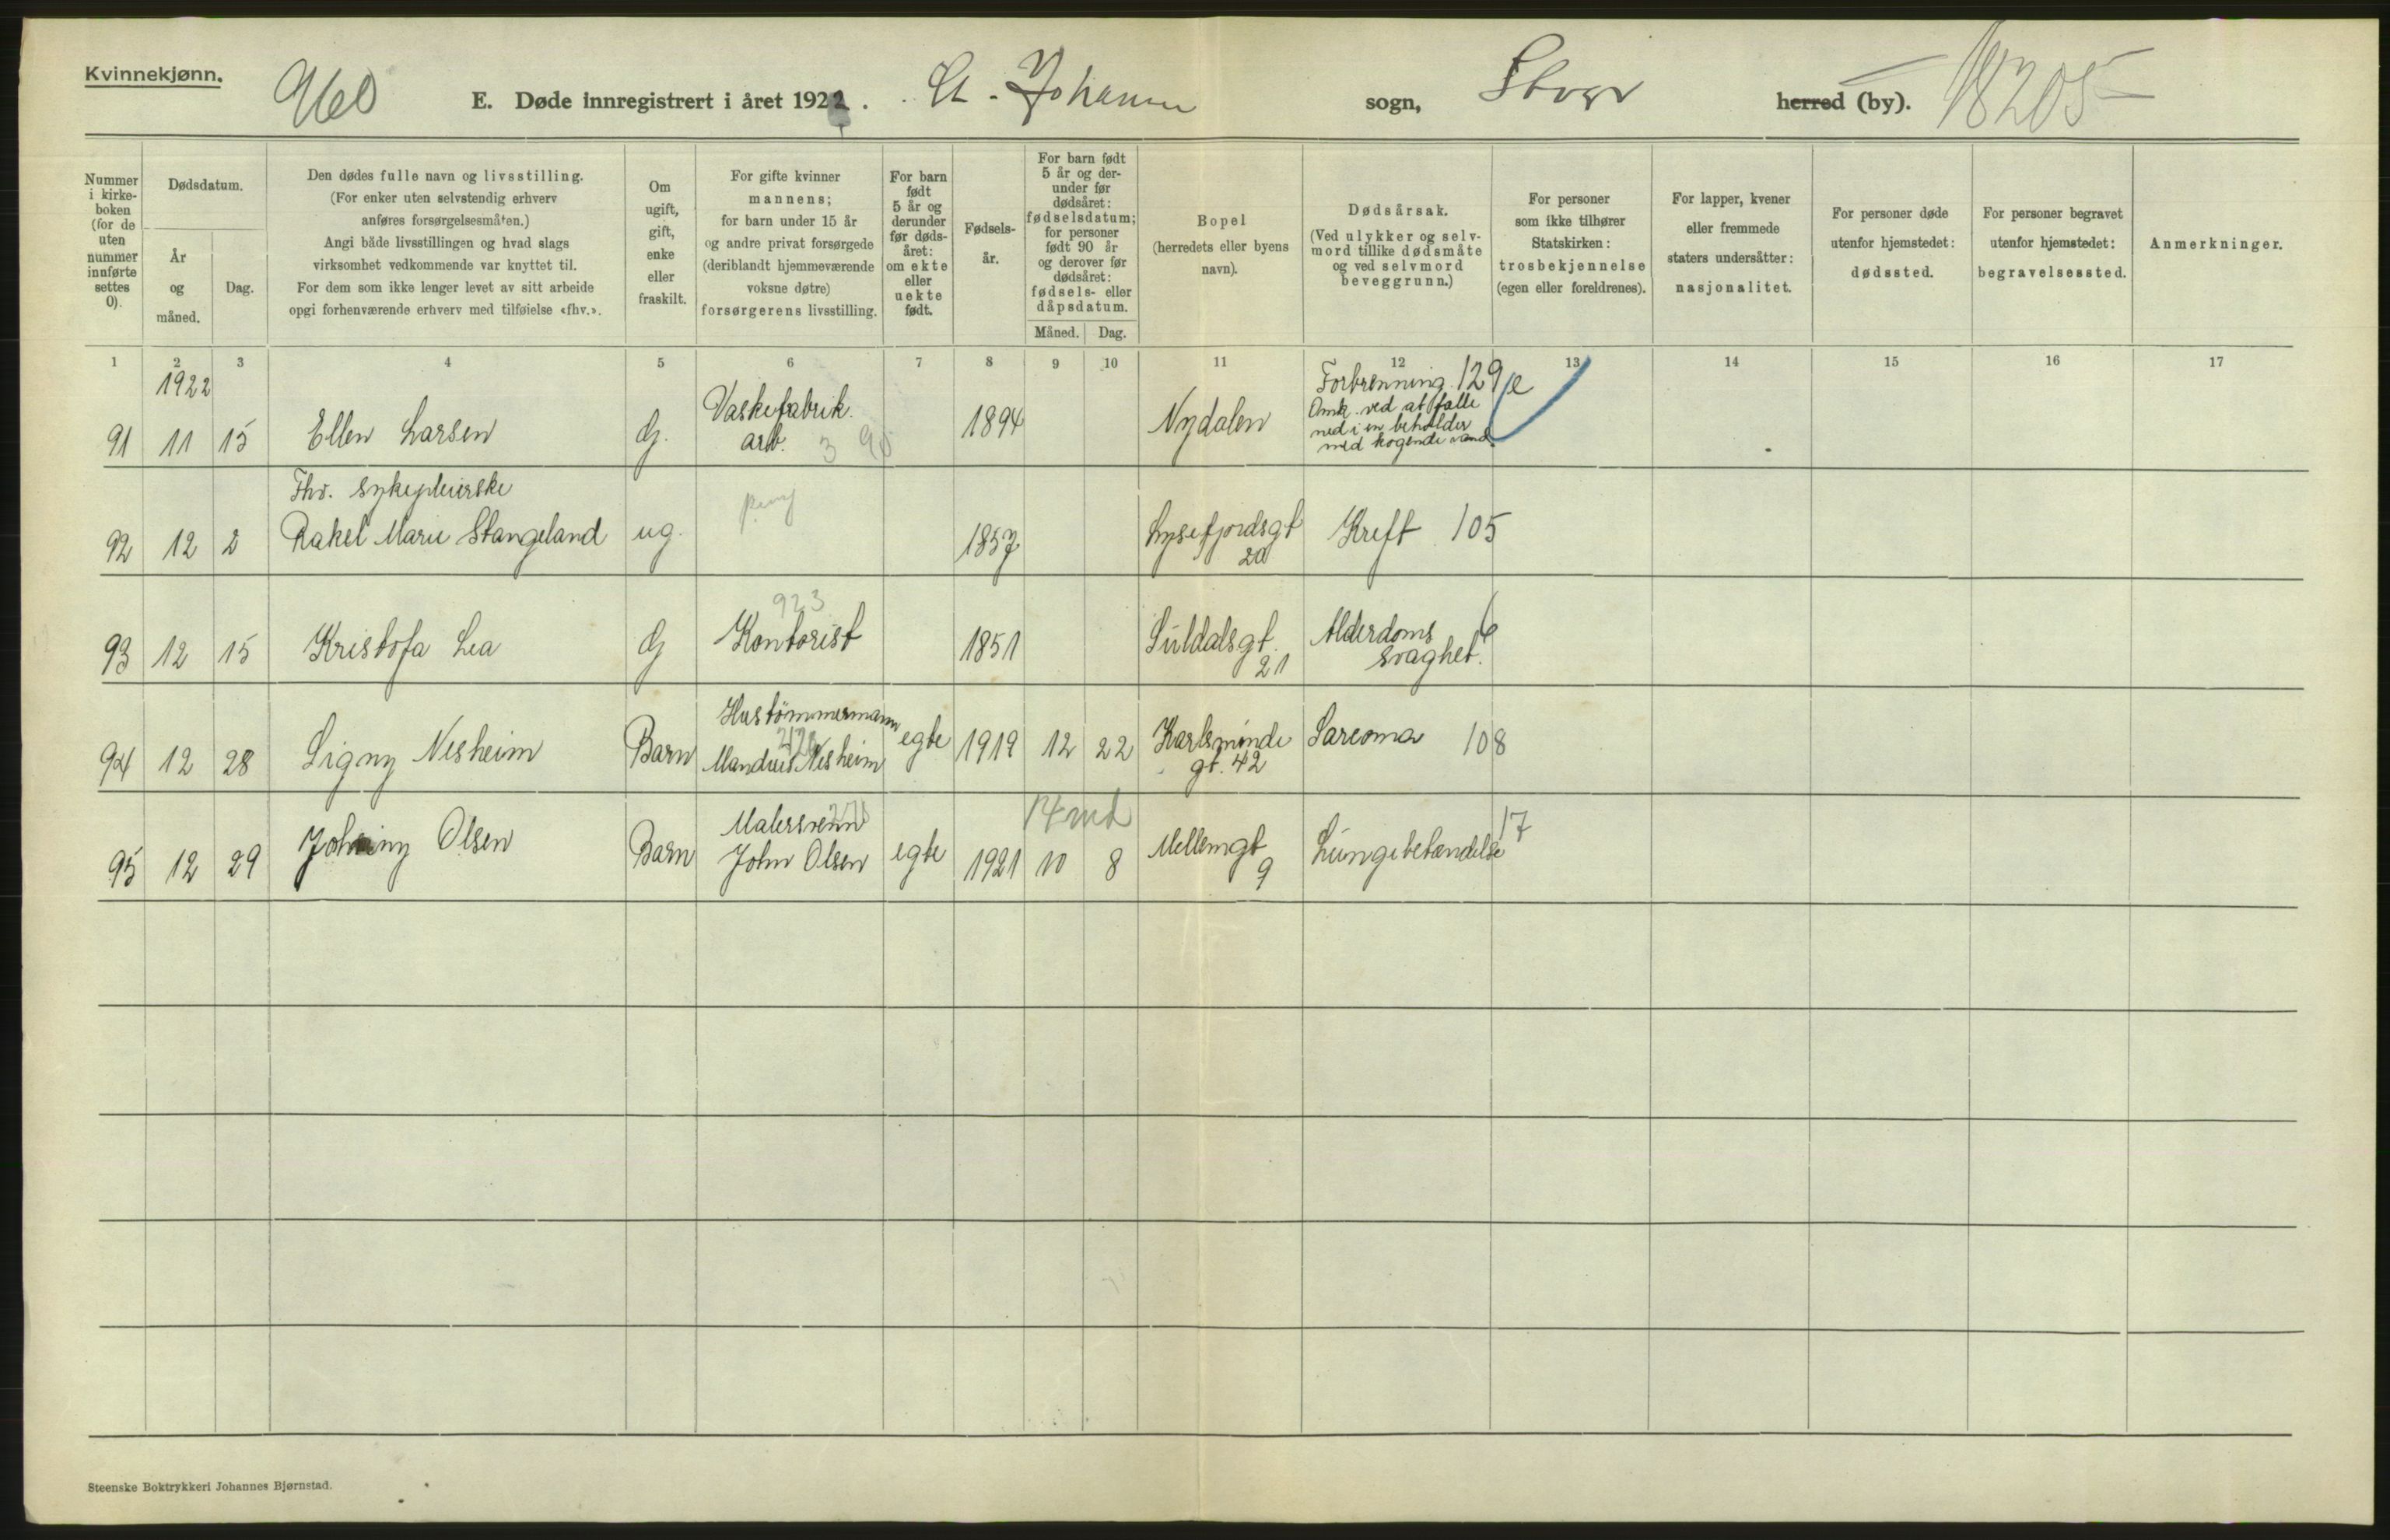 Kvinnekjønn.
960
E. Døde innregistrert i året 1922.
St. Johannes sogn, Stvgr herred (by).
18205
Nummer i kirkeboken (for de uten nummer innførte settes 0).
Dødsdatum.
År og måned.
Dag.
Den dødes fulle navn og livsstilling.
(For enker uten selvstendig erhverv
anføres forsørgelsesmåten.)
Angi både livsstillingen og hvad slags
virksomhet vedkommende var knyttet til.
For dem som ikke lenger levet av sitt arbeide
opgi forhenværende erhverv med tilføielse «fhv.».
Om
ugift,
gift,
enke
eller
fraskilt.
For gifte kvinner
mannens;
for barn under 15 år
og andre privat forsørgede
(deriblandt hjemmeværende
voksne døtre)
forsørgerens livsstilling.
For barn
født
5 år og
derunder
før døds-
året:
om ekte
eller
uekte
født.
Fødsels-
år.
For barn født
5 år og der-
under før
dødsåret:
fødselsdatum;
for personer
født 90 år
og derover før
dødsåret:
fødsels- eller
dåpsdatum.
Måned. Dag.
Bopel
(herredets eller byens
navn).
Dødsårsak.
(Ved ulykker og selv-
mord tillike dødsmåte
og ved selvmord
beveggrunn.)
For personer
som ikke tilhører
Statskirken:
trosbekjennelse
(egen eller foreldrenes).
For lapper, kvener
eller fremmede
staters undersåtter:
nasjonalitet.
For personer døde
utenfor hjemstedet:
dødssted.
For personer begravet
utenfor hjemstedet:
begravelsessted.
Anmerkninger.
1 2 3 4 5 6 7 8 9 10 11 12 13 14 15 16 17
1922
91 11 15 Ellen Larsen G. Vaskefabrik.
arb. 3 1894 Nydalen Forbrenning. 129 e
Omk. ved at falle
ned i en beholder
med kogende vand.
Fhv. sykepleierske
92 12 2 Rakel Marie Stangeland ug. 1857 Lysefjordsgt
20 Kreft 105
93 12 15 Kristofa Lea G 923
Kontorist 1851 Suldalsgt.
21 Alderdoms
svaghet.
94 12 28 Signy Nesheim Barn Hustömmermann
Mandius Nesheim egte 1919 12 22 Karlsminde
gt. 42 Sarcoma 108
95 12 29 Johniny Olsen Barn Malersvenn
John Olsen egte 1921 14 md
10 8 Mellemgt
9 Lungebetændelse 17
Steenske Boktrykkeri Johannes Bjørnstad.